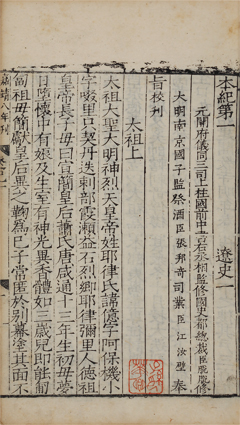 本紀第一　　　　遼史一
元開府儀同三司上柱國前中書右丞相監修國史都總裁臣脫脫修
大明南京國子監祭酒臣張邦奇司業臣江汝璧奉
旨校刊
太祖上
太祖大聖大明神烈天皇帝姓耶律氏諱億字阿保機小
字啜里只契丹迭剌部霞瀨益石烈鄉耶律彌里人德祖
皇帝長子母曰宣簡皇后蕭氏唐咸通十三年生初母夢
日墮懷中有娠及生室有神光異香體如三歲兒即能匍
匐祖母簡獻皇后異之鞠為己子常匿於別幕塗其面不
嘉靖八年刊